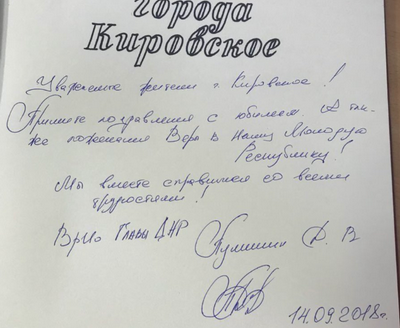 города
Кировское
Уважаемые жители г. Кировское!
Примите поздравления с юбилеем. А так-
же пожелания Веры в Нашу Молодую
Республику!
Мы вместе справимся со всеми
трудностями!
ВрИО Главы ДНР Пушилин Д. В
14.09.2018г.